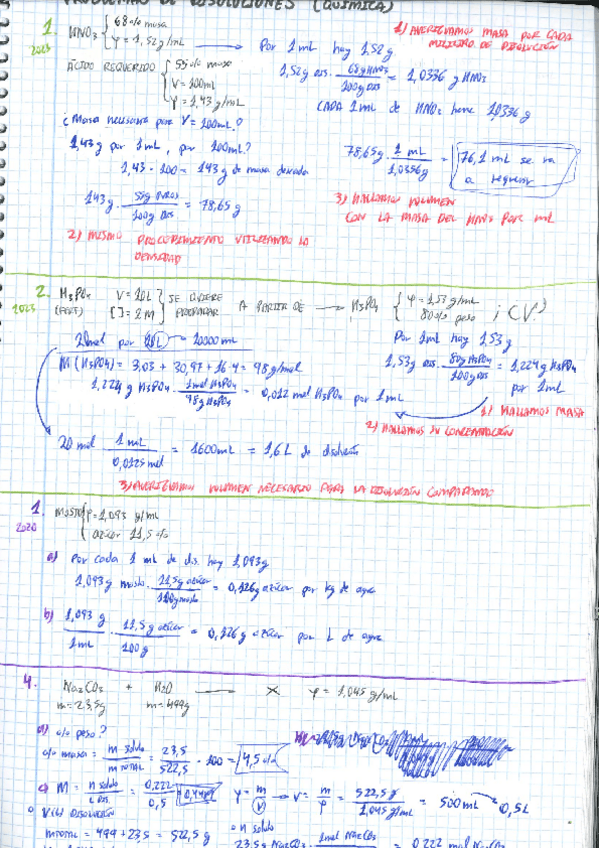 PROBLEMAS DE DISOLUCIONES (QUÍMICA)
1. HNO₃ { 68% masa
φ = 1,52 g/mL → Por 1 mL hay 1,52g
2023
1) AVERIGUAMOS MASA POR CADA MILILITRO DE DISOLUCIÓN
ÁCIDO REQUERIDO { 55% masa
V = 100mL
φ = 1,43 g/mL
1,52g dis. · 68g HNO₃ / 100g dis = 1,0336 g HNO₃
CADA 1mL de HNO₃ tiene 1,0336 g
¿Masa necesaria para V = 100mL?
1,43g por 1mL, por 100mL?
1,43 · 100 = 143g de masa deseada
143g · 55g HNO₃ / 100g dis = 78,65g
78,65g · 1 mL / 1,0336g = 76,1 mL se va a requerir
3) HALLAMOS VOLUMEN CON LA MASA DEL HNO₃ POR mL
2) MISMO PROCEDIMIENTO UTILIZANDO LA DENSIDAD
2. H₃PO₄ V = 10L } SE QUIERE
2023 [ ] = 2M } PREPARAR A PARTIR DE → H₃PO₄ { φ = 1,53 g/mL
80% peso ¿V?
20mol por 10L → 10000mL
Por 1mL hay 1,53g
M(H₃PO₄) = 3,03 + 30,97 + 16·4 = 98g/mol
1,53g dis. · 80g H₃PO₄ / 100g dis = 1,224g H₃PO₄ por 1mL
1,224 g H₃PO₄ · 1mol H₃PO₄ / 98g H₃PO₄ = 0,012 mol H₃PO₄ por 1mL
1) HALLAMOS MASA
2) HALLAMOS SU CONCENTRACIÓN
20 mol · 1mL / 0,0125mol = 1600mL = 1,6L de disolución
3) AVERIGUAMOS VOLUMEN NECESARIO PARA LA DISOLUCIÓN COMPARANDO
1. MOSTO { φ = 1,093 g/mL
2020 azúcar 11,5%
a) Por cada 1 mL de dis. hay 1,093g
1,093g mosto · 11,5g azúcar / 100g mosto = 0,126g azúcar por kg de agua
b) 1,093 g / 1mL · 11,5g azúcar / 100g = 0,126g azúcar por L de agua
4. Na₂CO₃ + H₂O → X φ = 1,045 g/mL
m = 23,5g m = 499g
a) % peso?
% masa = m soluto / m TOTAL = 23,5 / 522,5 · 100 = 4,5%
c) M = n soluto / L DIS. = 0,222 / 0,5
φ = m / V → V = m / φ = 522,5g / 1,045 g/mL = 500mL → 0,5L
o V(L) DISOLUCIÓN
mTOTAL = 499 + 23,5 = 522,5 g o n soluto
23,5g Na₂CO₃ · 1mol Na₂CO₃ = 0,222 mol Na₂CO₃